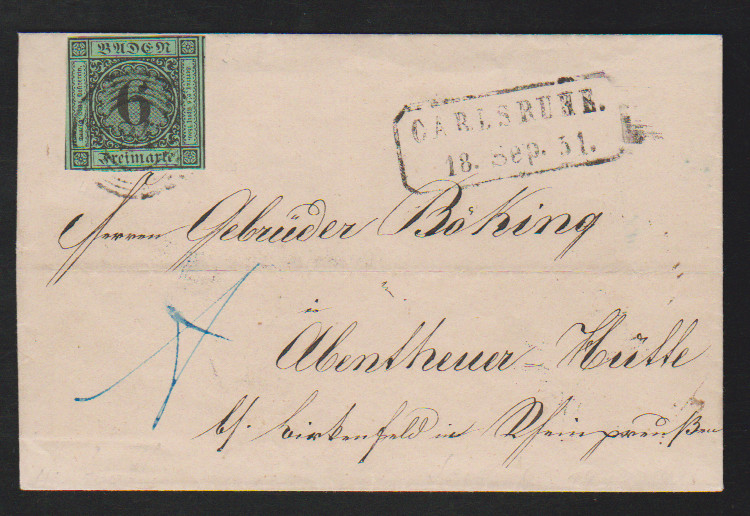 BADEN
6
Freimarke
CARLSRUHE.
18. Sep. 51.
Herren Gebrüder Böking
in
Abentheuer-Hütte
b/. Birkenfeld in Rheinpreußen